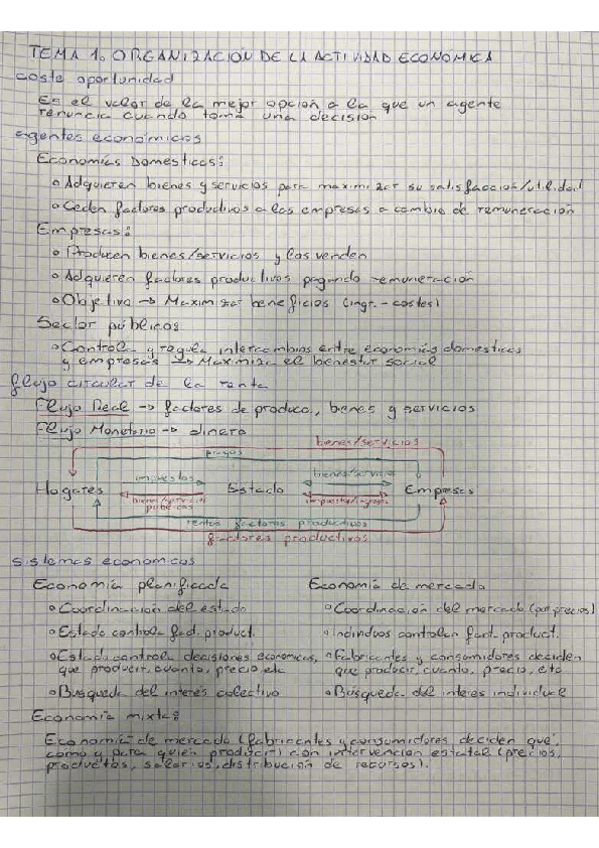 TEMA 1. ORGANIZACIÓN DE LA ACTIVIDAD ECONÓMICA
coste oportunidad
Es el valor de la mejor opción a la que un agente
renuncia cuando toma una decisión
agentes económicos
Economías Domésticas:
Adquieren bienes y servicios para maximizar su satisfacción/utilidad
Ceden factores productivos a las empresas a cambio de remuneración
Empresas:
Producen bienes/servicios y los venden
Adquieren factores productivos pagando remuneración
Objetivo → Maximizar beneficios (ingr. - costes)
Sector públicos
Controla y regula intercambios entre economías domésticas
y empresas → Maximiza el bienestar social
flujo circular de la renta
Flujo Real → factores de producc., bienes y servicios
Flujo Monetario → dinero
bienes/servicios
pagos
impuestos bienes/servicios
Hogares Estado Empresas
bienes/servicios impuestos
públicos
rentas factores productivos
factores productivos
sistemas economicos
Economía planificada Economía de mercado
Coordinación del estado Coordinación del mercado (por precios)
Estado controla fact. product. Individuos controlan fact. product.
Estado controla decisiones economicas, Fabricantes y consumidores deciden
que producir, cuanto, precio, etc que producir, cuanto, precio, etc
Búsqueda del interés colectivo Búsqueda del interés individual
Economía mixta:
Economía de mercado (fabricantes y consumidores deciden qué,
como y para quien producir) con intervención estatal (precios,
productos, salarios, distribución de recursos).